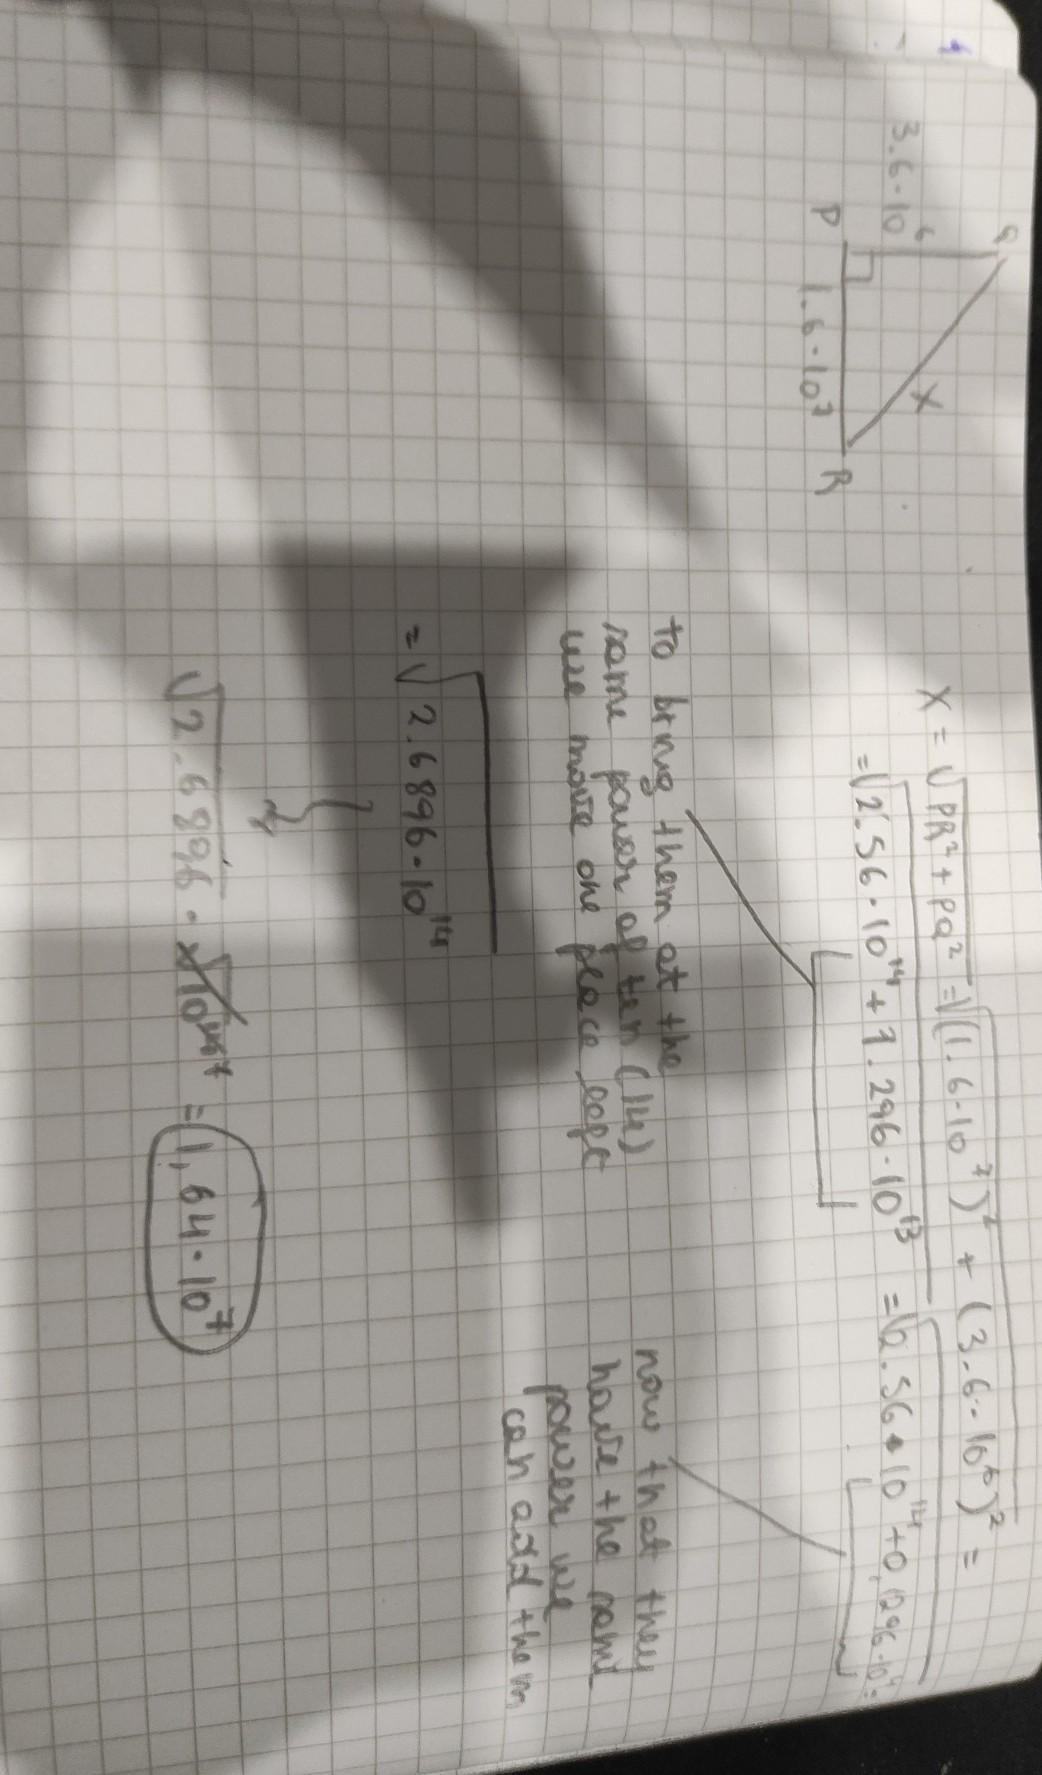 Q
3.6·10⁶
X
P
1.6·10⁷
R
X = √PR²+PQ² = √(1.6·10⁷)² + (3.6·10⁶)² =
= √2.56·10¹⁴ + 1.296·10¹³ = √2.56·10¹⁴ + 0,1296·10¹⁴ =
to bring them at the
same power of ten (14)
we move one place left
now that they
have the same
power we
can add them
= √2.6896·10¹⁴
√2.6896 · = 1,64·10⁷